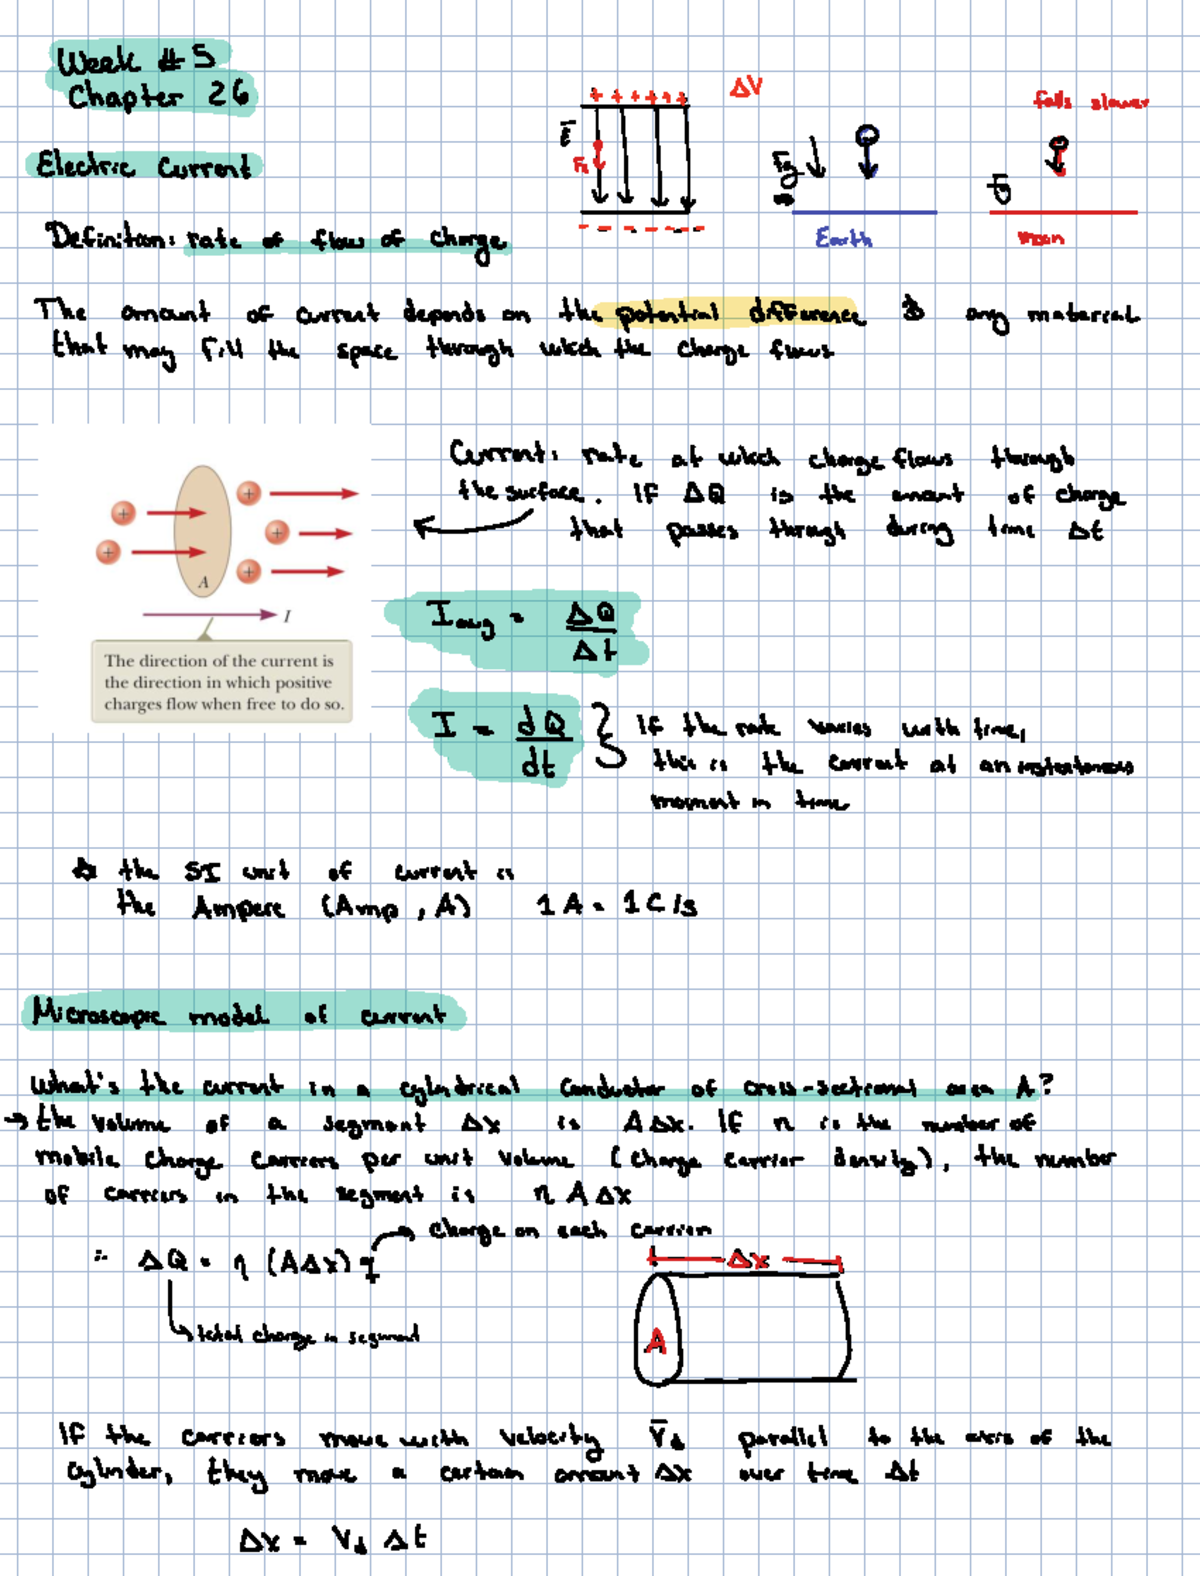 Week # 5
Chapter 26
+ + + + +
ΔV
E
Fe
- - - - - -
Fg
Earth
falls slower
Fg
moon
Electric Current
Definition: rate of flow of charge
The amount of current depends on the potential difference & any material
that may fill the space through which the charge flows
Current: rate at which charge flows through
the surface. If ΔQ is the amount of charge
that passes through during time Δt
A
I
The direction of the current is
the direction in which positive
charges flow when free to do so.
I avg = ΔQ / Δt
I = dQ / dt } If the rate varies with time,
this is the current at an instantaneous
moment in time
☆ the SI unit of current is
the Ampere (Amp, A) 1 A = 1 C/s
Microscopic model of current
What's the current in a cylindrical conductor of cross-sectional area A?
→ the volume of a segment Δx is AΔx. If n is the number of
mobile charge carriers per unit volume (charge carrier density), the number
of carriers in the segment is n A Δx
→ charge on each carrier
∴ ΔQ = n (AΔx) q
↳ total charge in segment
Δx
A
If the carriers move with velocity v̄d parallel to the axis of the
cylinder, they move a certain amount Δx over time Δt
Δx = Vd Δt